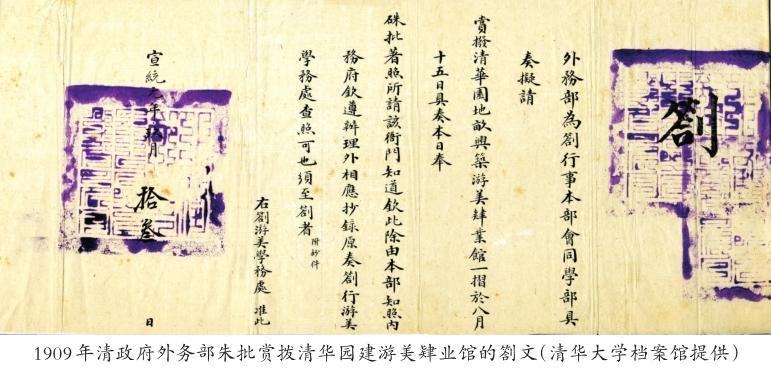 劄
外務部為劄行事本部會同學部具
奏擬請
賞撥清華園地畝興築游美肄業館一摺於八月
十五日具奏本日奉
硃批著照所請該衙門知道欽此除由本部知照內
務府欽遵辦理外相應抄錄原奏劄行游美
學務處查照可也須至劄者 附鈔件
右劄游美學務處 准此
宣統元年 月 拾叁 日
1909年清政府外务部朱批赏拨清华园建游美肄业馆的劄文(清华大学档案馆提供)